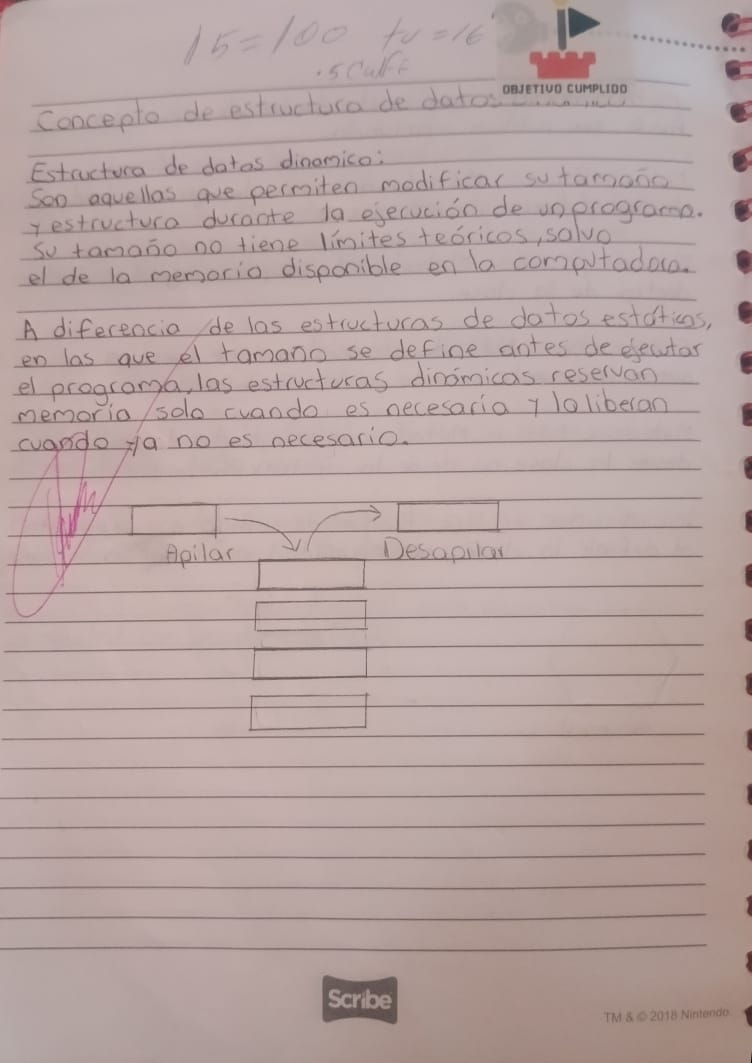 15=100 tu=16
.5 Calif
OBJETIVO CUMPLIDO
Concepto de estructura de datos
Estructura de datos dinamico:
Son aquellas que permiten modificar su tamaño
y estructura durante la ejecución de un programa.
Su tamaño no tiene límites teóricos, salvo
el de la memoria disponible en la computadora.
A diferencia de las estructuras de datos estáticas,
en las que el tamaño se define antes de ejecutar
el programa, las estructuras dinámicas reservan
memoria solo cuando es necesaria y la liberan
cuando ya no es necesario.
Apilar Desapilar
Scribe
TM & © 2018 Nintendo.